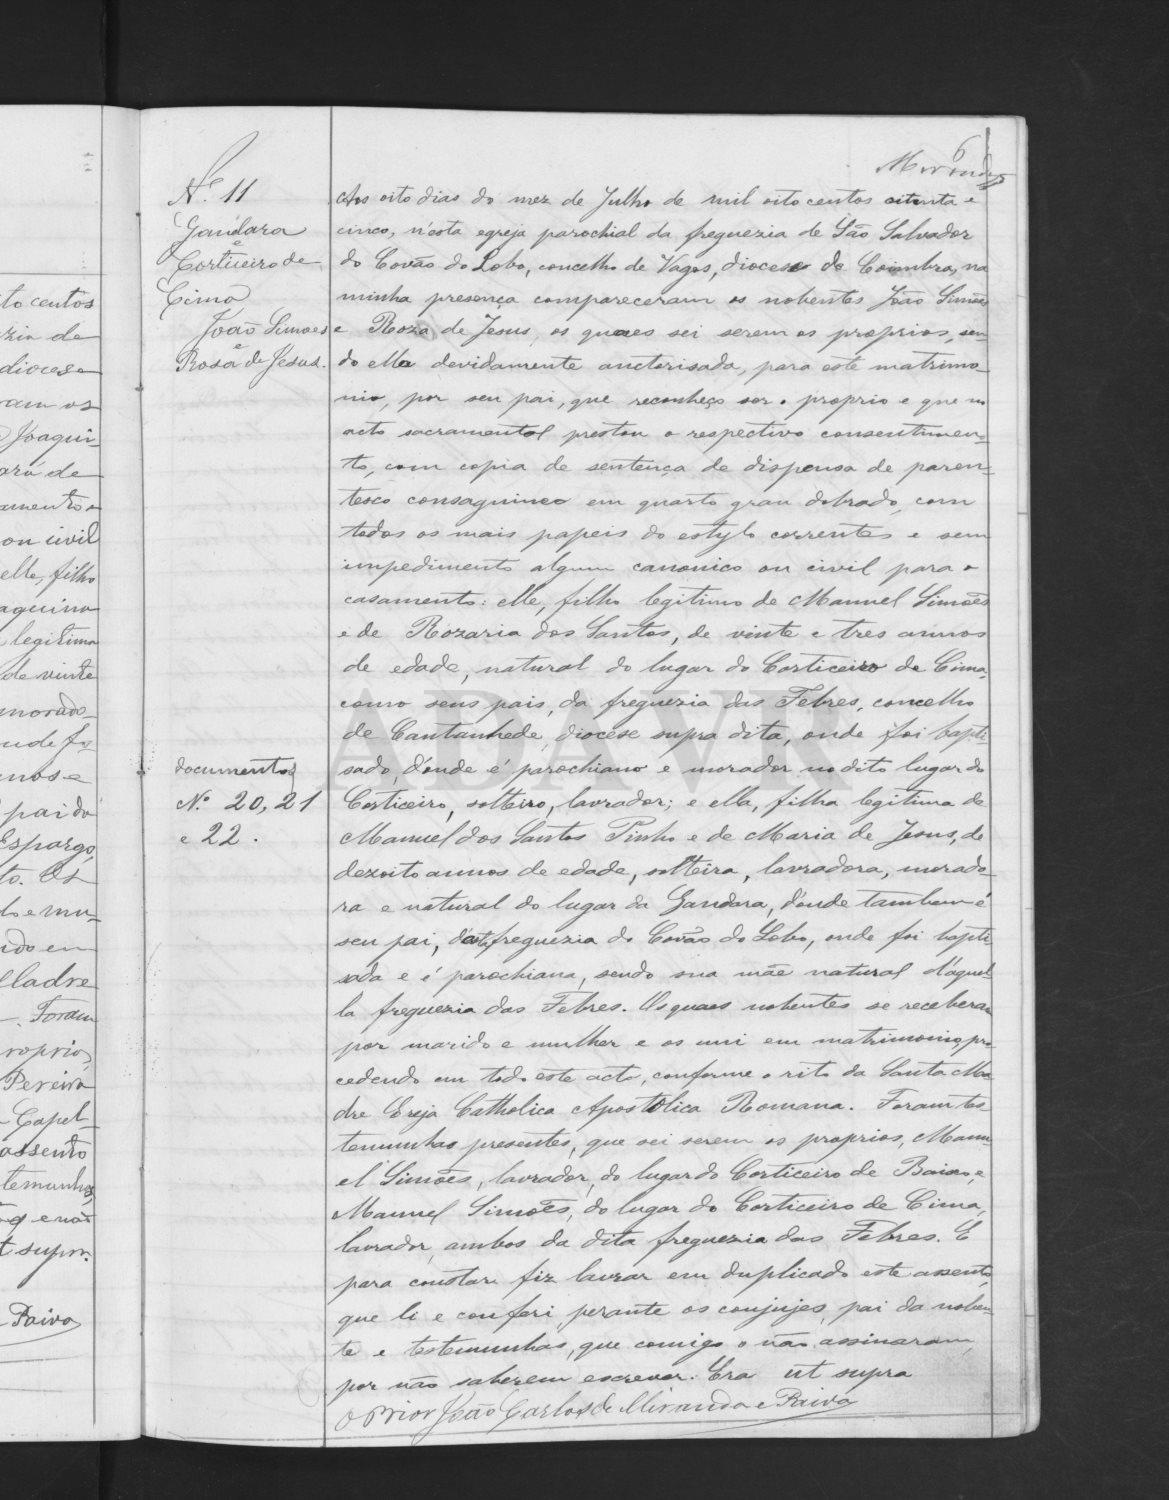 6
Miranda
Nº 11
Gandara
e
Corticeiro de
Cima
João Simões
e
Rosa de Jesus.
documentos
Nº 20, 21
e 22.
Aos oito dias do mez de Julho de mil oito centos oitenta e
cinco, n'esta egreja parochial da freguezia de São Salvador
do Covão do Lobo, concelho de Vagos, diocese de Coimbra, na
minha presença compareceram os nubentes João Simões
e Roza de Jesus, os quaes sei serem os proprios, sen-
do ella devidamente auctorisada, para este matrimo-
nio, por seu pai, que reconheço ser o proprio e que no
acto sacramental prestou o respectivo consentimen-
to, com copia de sentença de dispensa de paren-
tesco consaguineo em quarto grau dobrado, com
todos os mais papeis do estylo correntes e sem
impedimento algum canonico ou civil para o
casamento: elle, filho legitimo de Manuel Simões
e de Rozaria dos Santos, de vinte e tres annos
de edade, natural do lugar do Corticeiro de Cima,
como seus pais, da freguezia das Febres, concelho
de Cantanhede, diocese supra dita, onde foi bapti-
sado, d'onde é parochiano e morador no dito lugar do
Corticeiro, solteiro, lavrador; e ella, filha legitima de
Manuel dos Santos Pinho e de Maria de Jesus, de
dezoito annos de edade, solteira, lavradora, morado-
ra e natural do lugar da Gandara, d'onde tambem é
seu pai, d'esta freguezia do Covão do Lobo, onde foi bapti-
sada e é parochiana, sendo sua mãe natural d'aquel-
la freguezia das Febres. Os quaes nubentes se receberam
por marido e mulher e os uni em matrimonio, pro-
cedendo em todo este acto, conforme o rito da Santa Ma-
dre Egreja Catholica Apostolica Romana. Foram tes-
temunhas presentes, que sei serem os proprios, Manu-
el Simões, lavrador, do lugar do Corticeiro de Baixo, e
Manuel Simões, do lugar do Corticeiro de Cima,
lavrador, ambos da dita freguezia das Febres. E
para constar fiz lavrar em duplicado este assento,
que li e conferi perante os conjujes, pai da nuben-
te e testemunhas, que comigo o não assinaram,
por não saberem escrever. Era ut supra
O Prior João Carlos de Miranda e Paiva
ito centos
zia de
diocese
ram os
Joaqui-
ará de
amento e
ou civil
elle, filho
aquina
legitima
de vinte
morado-
nos e
pai do
Espargo,
to. Os
do e mu-
ido em
Madre
Foram
roprios,
Pereira
Capel-
assento
temunhas,
e não
t supra.
Paiva
ADAVR